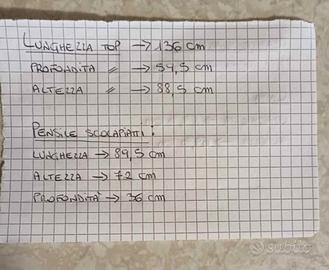 LUNGHEZZA TOP → 136 cm
PROFONDITA " → 54,5 cm
ALTEZZA " → 88,5 cm
PENSILE SCOLAPIATTI:
LUNGHEZZA → 89,5 cm
ALTEZZA → 72 cm
PROFONDITÀ → 36 cm
subito